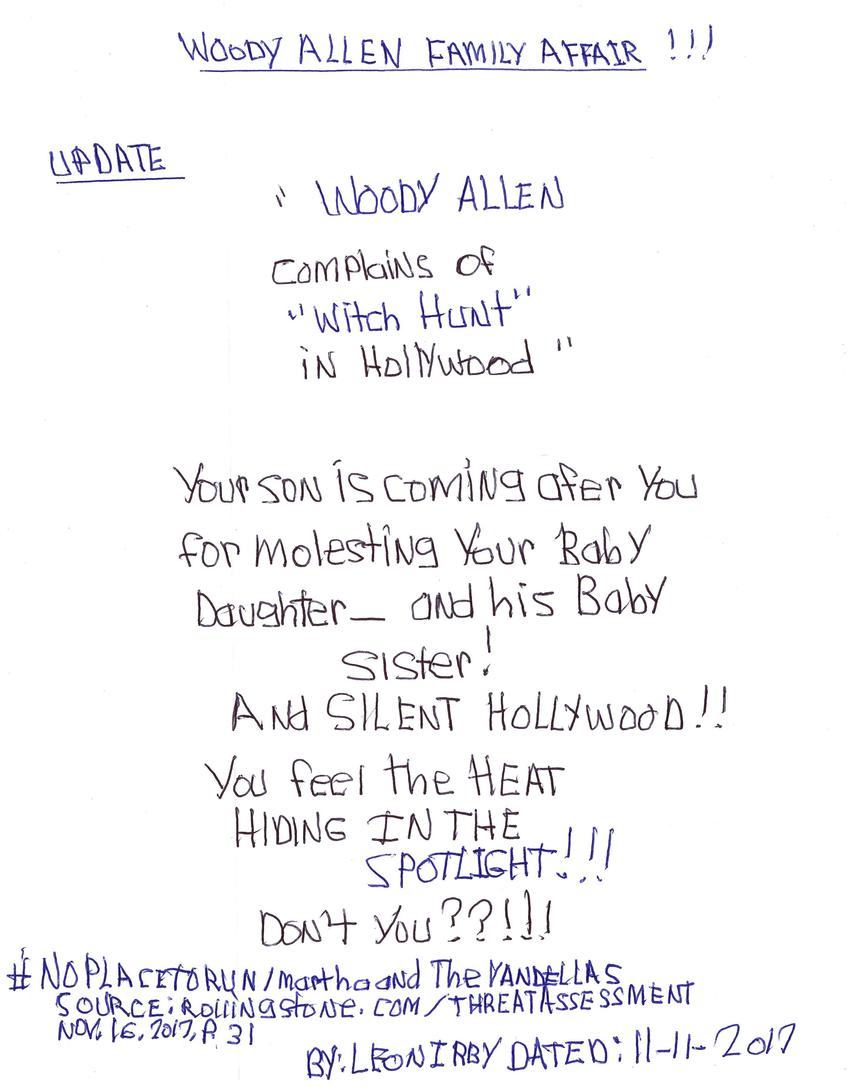 WOODY ALLEN FAMILY AFFAIR !!!
UPDATE
" WOODY ALLEN
COMPlaiNS OF
"Witch HUNt"
iN HollYwood "
YOUR SON iS COMiNg afer YOU
for Molesting Your Baby
Daughter_ and his Baby
Sister!
ANd SILENT HOLLYWOOD!!
You feel the HEAT
HIDING IN THE
SPOTLIGHT!!!
DON't YOU??!!!
# NOPLACETORUN/martha and The VANDELLAS
SOURCE: Rollingstone.COM/THREATASSESSMENT
NOV. 16, 2017, P. 31
BY: LEON IRBY DATED: 11-11-2017